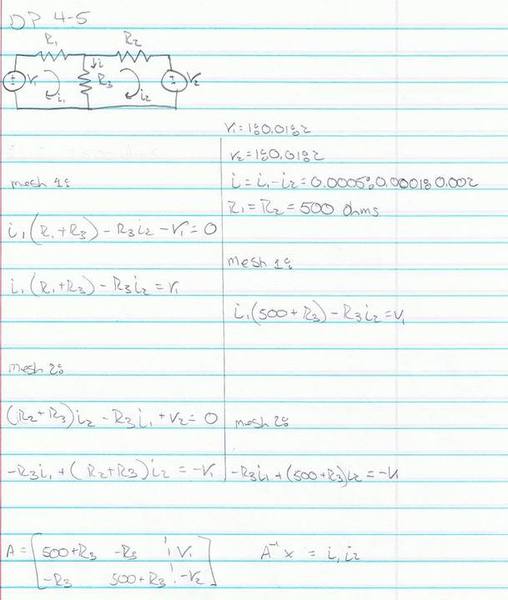 DP 4-5
R₁ R₂
V₁ i₁ i R₃ i₂ V₂
V₁ = 1:0.01:2
V₂ = 1:0.01:2
mesh 1: i = i₁ - i₂ = 0.0005:0.0001:0.002
R₁ = R₂ = 500 ohms
i₁(R₁+R₃) - R₃i₂ - V₁ = 0
mesh 1:
i₁(R₁+R₃) - R₃i₂ = V₁
i₁(500+R₃) - R₃i₂ = V₁
mesh 2:
(R₂+R₃)i₂ - R₃i₁ + V₂ = 0 mesh 2:
-R₃i₁ + (R₂+R₃)i₂ = -V₁ -R₃i₁ + (500+R₃)i₂ = -V₁
A = [500+R₃ -R₃ ¦ V₁ A⁻¹x = i₁ i₂
-R₃ 500+R₃ ¦ -V₂]